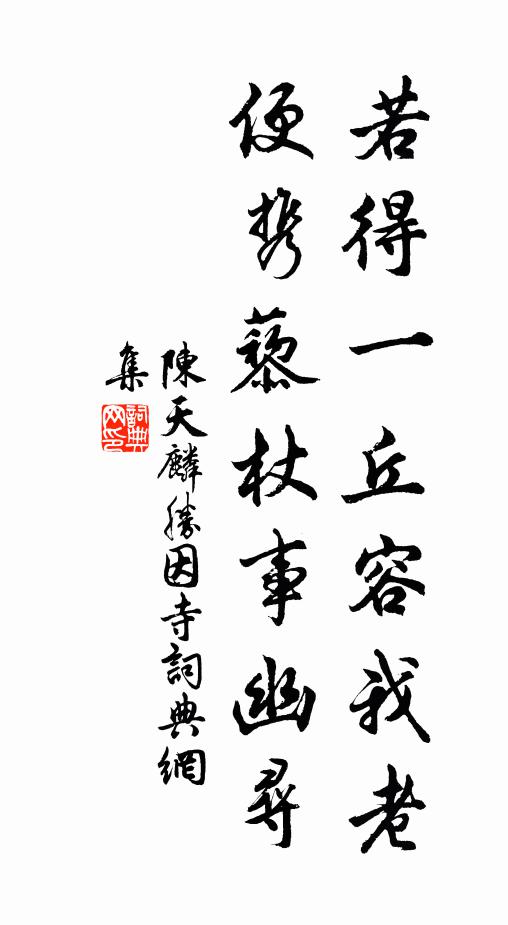 若得一丘容我老
便携藜杖事幽尋
陳天麟勝因寺詞典網
集
詞典
网印